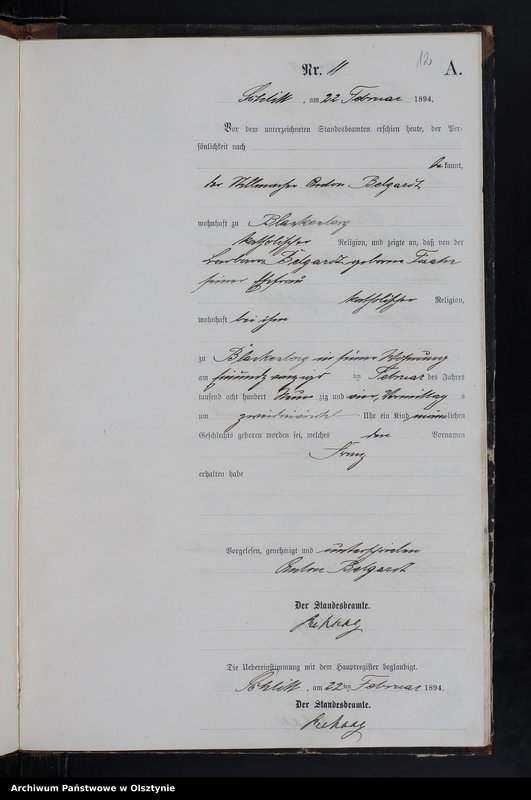 12
Nr. 11 A.
Schlitt, am 22 Februar 1894.
Vor dem unterzeichneten Standesbeamten erschien heute, der Per-
sönlichkeit nach
bekannt,
der Stellmacher Anton Belgardt
wohnhaft zu Blankenberg
katholischer Religion, und zeigte an, daß von der
Barbara Belgardt geborene
seiner Ehefrau
katholischer Religion,
wohnhaft bei ihm
zu Blankenberg in seiner Wohnung
am einundzwanzigs ten Februar des Jahres
tausend acht hundert Neunzig und vier, Vormittags
um Uhr ein Kind männlichen
Geschlechts geboren worden sei, welches den Vornamen
Franz
erhalten habe
Vorgelesen, genehmigt und unterschrieben
Anton Belgardt
Der Standesbeamte.
Rehaag
Die Uebereinstimmung mit dem Hauptregister beglaubigt.
Schlitt, am 22ten Februar 1894.
Der Standesbeamte.
Rehaag
Archiwum Państwowe w Olsztynie